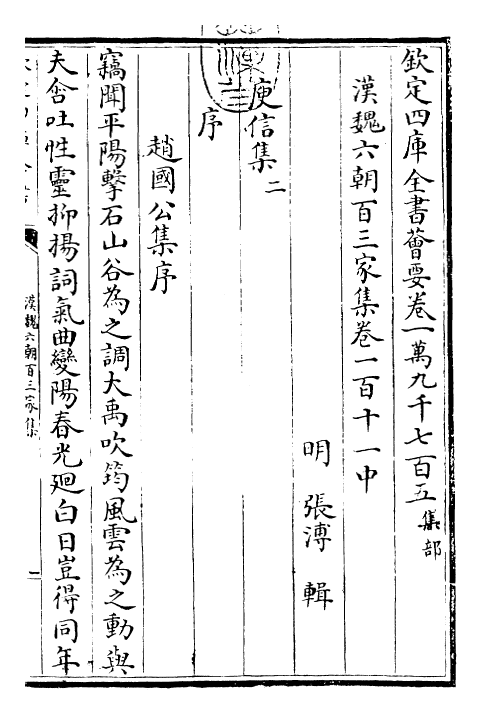 欽定四庫全書薈要卷一萬九千七百五 集部
漢魏六朝百三家集卷一百十一中
明 張溥 輯
庾信集二
序
趙國公集序
竊聞平陽擊石山谷為之調大禹吹筠風雲為之動與
夫含吐性靈抑揚詞氣曲變陽春光廻白日豈得同年
漢魏六朝百三家集
一